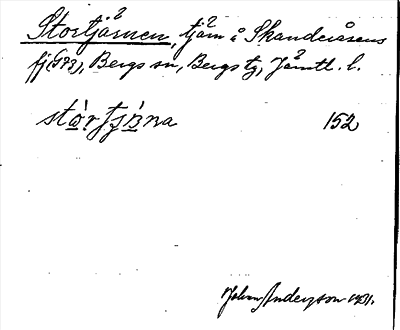 Stortjärnen, tjärn å Skanderåsens
fj (GPZ), Bergs sn, Bergs tg, Jämtl. l.
stò̱r tjä̀rna 152
Johan Anderson 1931.